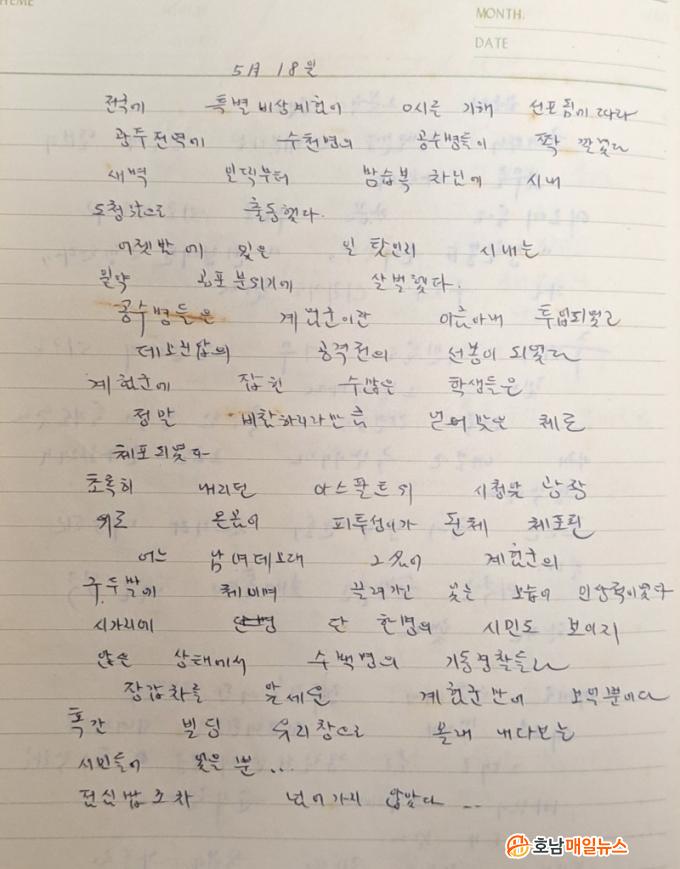 HEME
MONTH.
DATE
5月 18일
전국에 특별비상계엄이 0시를 기해 선포됨에 따라
광주전역에 수천명의 공수병들이 쫙 깔렸다
새벽 부터 시내
도청앞으로 출동했다.
어젯밤에 있은 일 탓인지 시내는
원약 공포분위기에 살벌했다.
공수병들은 계엄군이란 이름아래 투입되었고
데모진압의 공격전의 선봉이 되었다
계엄군에 잡힌 수많은 학생들은
정말 비참하리만큼 얻어맞은 체로
체포되었다
초록히 내리던 아스팔트위 시청앞 광장
위로 온몸이 피투성이가 된체 체포된
어느 남녀데모대 그 계엄군의
구두발에 체이며 끌려가던 모습이 인상적이었다
시가지에 단 한명의 시민도 보이지
않은 상태에서 수백명의 기동경찰들과
장갑차를 앞세운 계엄군만이 보일뿐이다
혹간 빌딩 유리창으로 몰래 내다보는
시민들이 있을 뿐...
점심밥조차 넘어가지 않았다...
호남매일뉴스